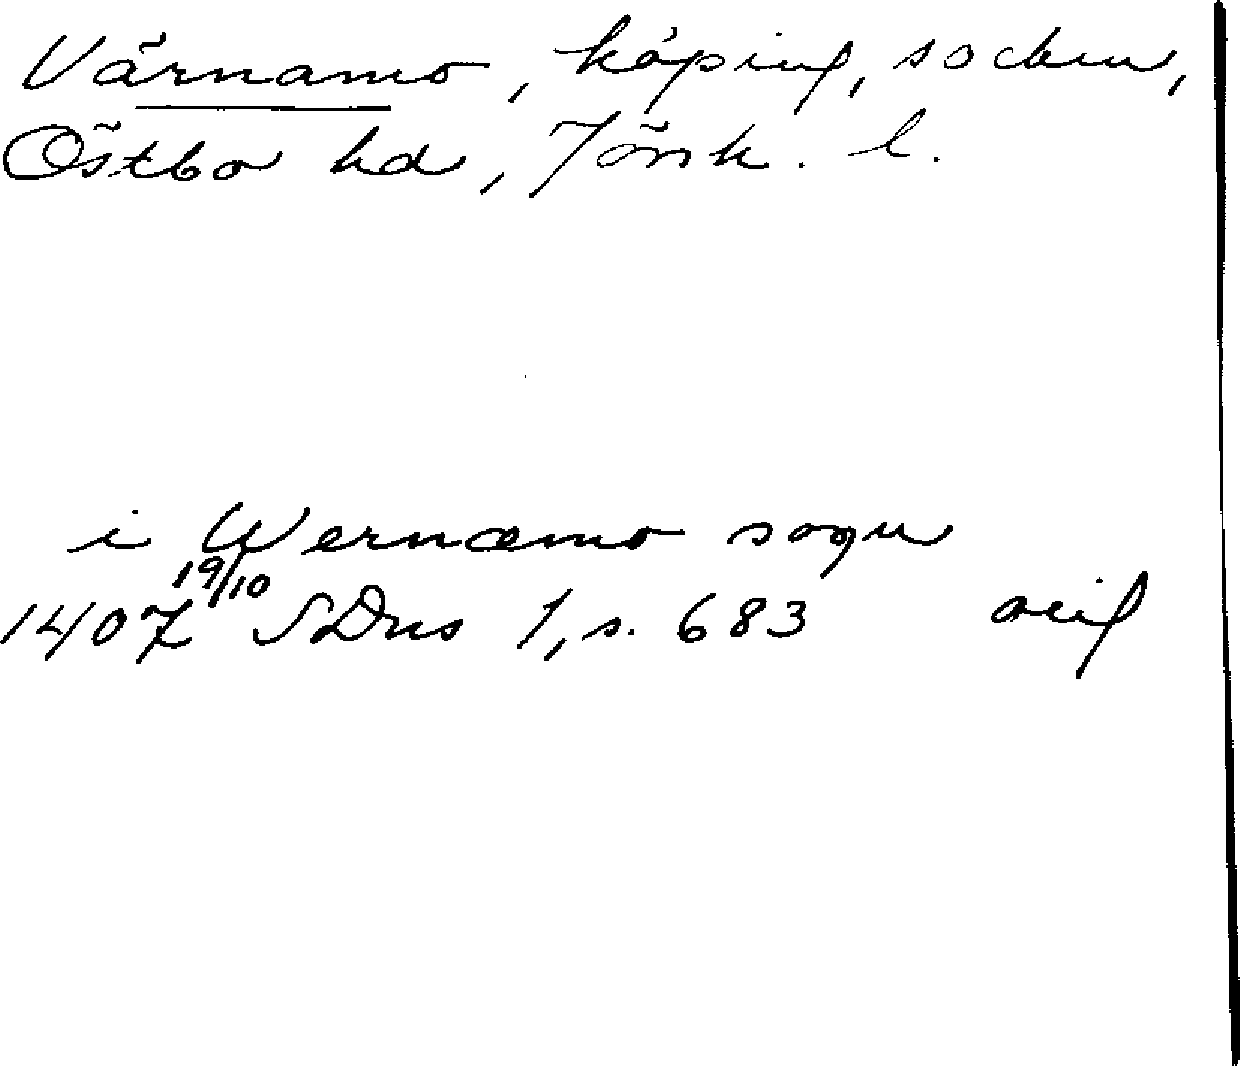 Värnamo, köping, socken,
Östbo hd, Jönk. l.
i Wernæmo sogn
1407 19/10 SDns 1, s. 683 orig